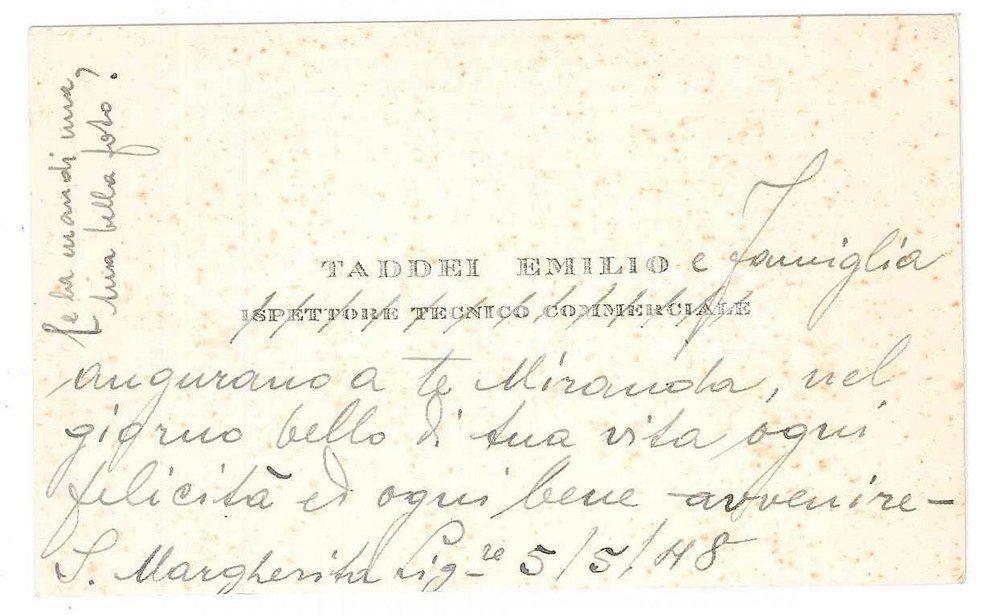 TADDEI EMILIO e famiglia
ISPETTORE TECNICO COMMERCIALE
augurano a te Miranda, nel
giorno bello di tua vita ogni
felicità ed ogni bene avvenire -
S. Margherita Lig-re 5/5/48
ce la mandi una,
una bella foto?